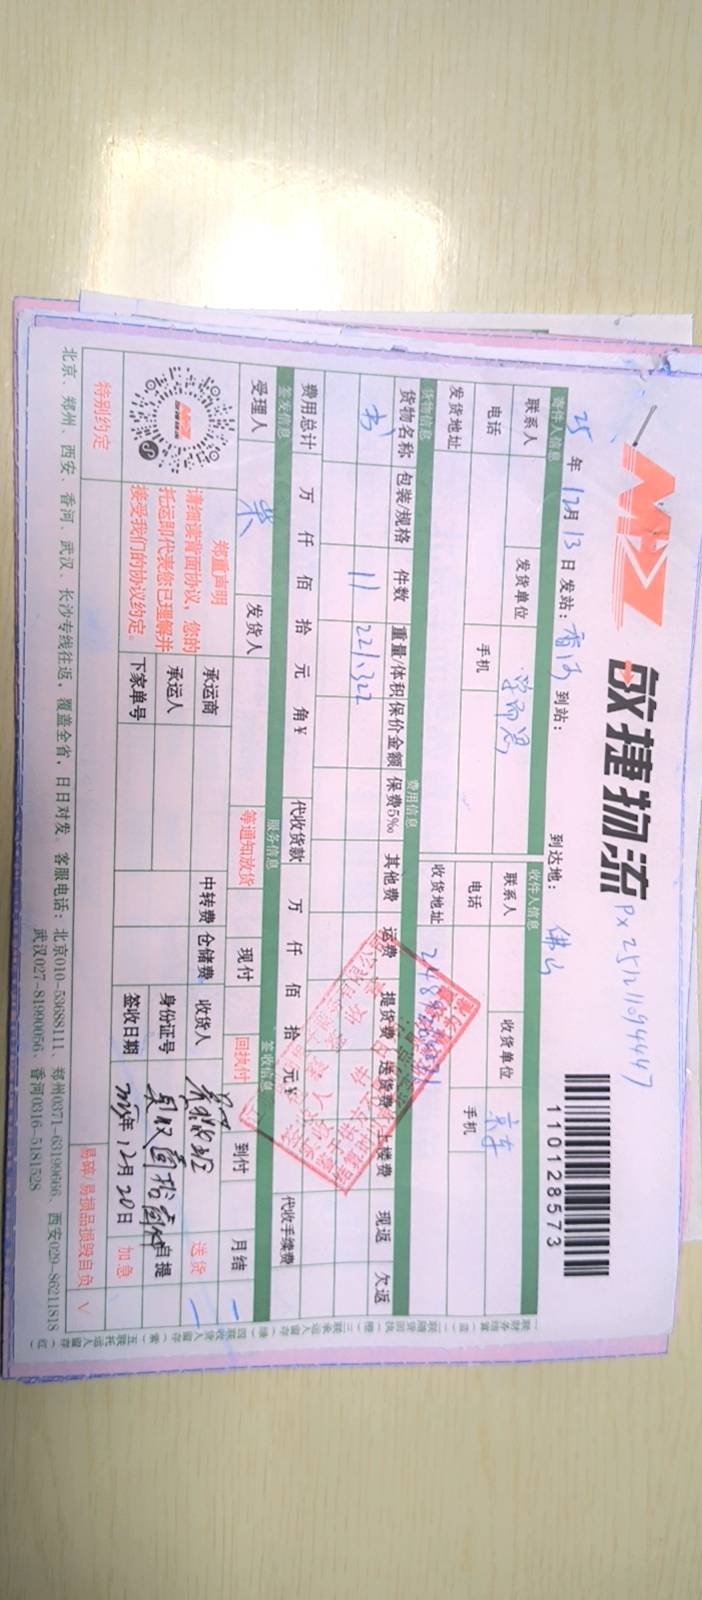 敏捷物流
PX25121094447
110128573
25年12月13日 发站：香河 到站： 到达地：佛山
寄件人信息 收件人信息
联系人 发货单位 学而思 联系人 收货单位 京东
电话 手机 电话 手机
发货地址 收货地址
货物信息 费用信息
货物名称 包装/规格 件数 重量/体积 保价金额 保费5‰ 其他费 运费 提货费 送货费 上楼费 现返 欠返
书 11 221.322
费用总计 万 仟 佰 拾 元 角¥ 代收货款 万 仟 佰 拾 元¥ 代收手续费
签发信息 服务信息 签收信息
受理人 发货人 等通知放货 现付 回执付 到付 月结
郑重声明
请细读背面协议，您的
托运即代表您已理解并
接受我们的协议约定。
承运商 中转费 仓储费 收货人 送货
承运人 身份证号 自提
下家单号 签收日期 2025年12月20日 加急
特别约定 易碎/易损品损毁自负 √
北京、郑州、西安、香河、武汉、长沙专线往返，覆盖全省，日日对发。客服电话：北京010-53688111、郑州0371-63199666、西安029-86211818
武汉027-81990056、香河0316-5181528